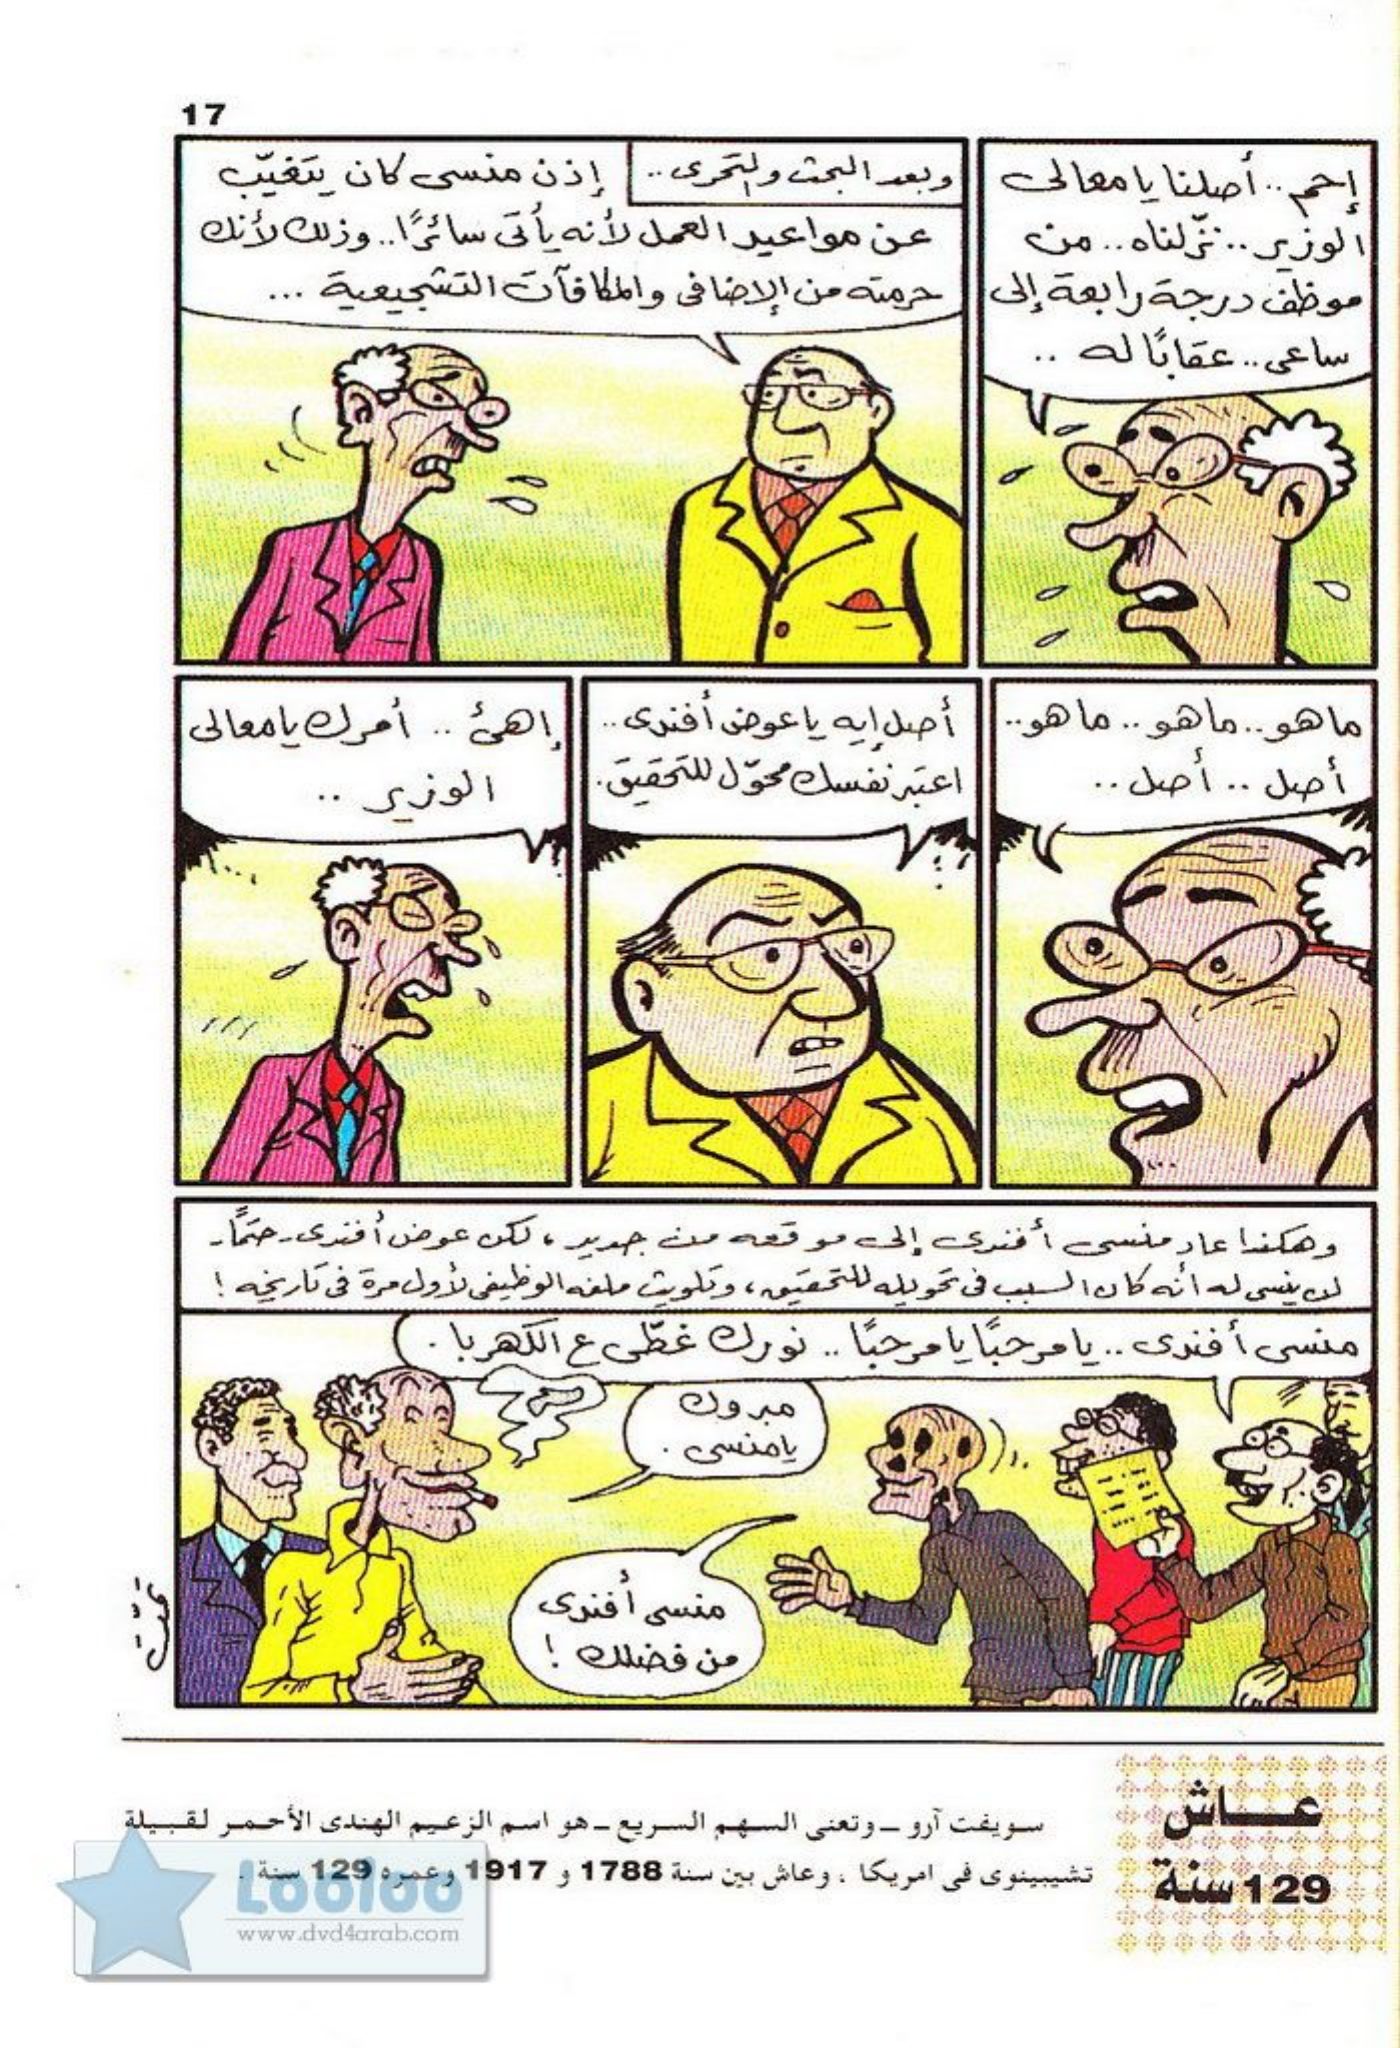 17
إحم .. أصلنا يا معالى
الوزير .. نزّلناه .. من
موظف درجة رابعة إلى
ساعى .. عقابًا له ..
وبعد البحث والتحرى ..
إذن منسى كان يتغيّب
عن مواعيد العمل لأنه يأتى سائرًا .. وذلك لأنك
حرمته من الإضافى والمكافآت التشجيعية ...
ما هو .. ما هو .. ما هو ..
أصل .. أصل ..
أصل إيه يا عوض أفندى ..
اعتبر نفسك محوّل للتحقيق .
إهئ .. أمرك يا معالى
الوزير ..
وهكذا عاد منسى أفندى إلى موقعه من جديد ، لكن عوض أفندى - حتمًا -
لن ينسى له أنه كان السبب فى تحويله للتحقيق ، وتلويث ملفه الوظيفى لأول مرة فى تاريخه !
منسى أفندى .. يا مرحبًا يا مرحبًا .. نورك غطّى ع الكهربا .
مبروك
يا منسى .
منسى أفندى
من فضلك !
عــاش
129 سنة
سويفت آرو ــ وتعنى السهم السريع ــ هو اسم الزعيم الهندى الأحمر لقبيلة
تشيبينوى فى امريكا ، وعاش بين سنة 1788 و 1917 وعمره 129 سنة .
Looloo
www.dvd4arab.com